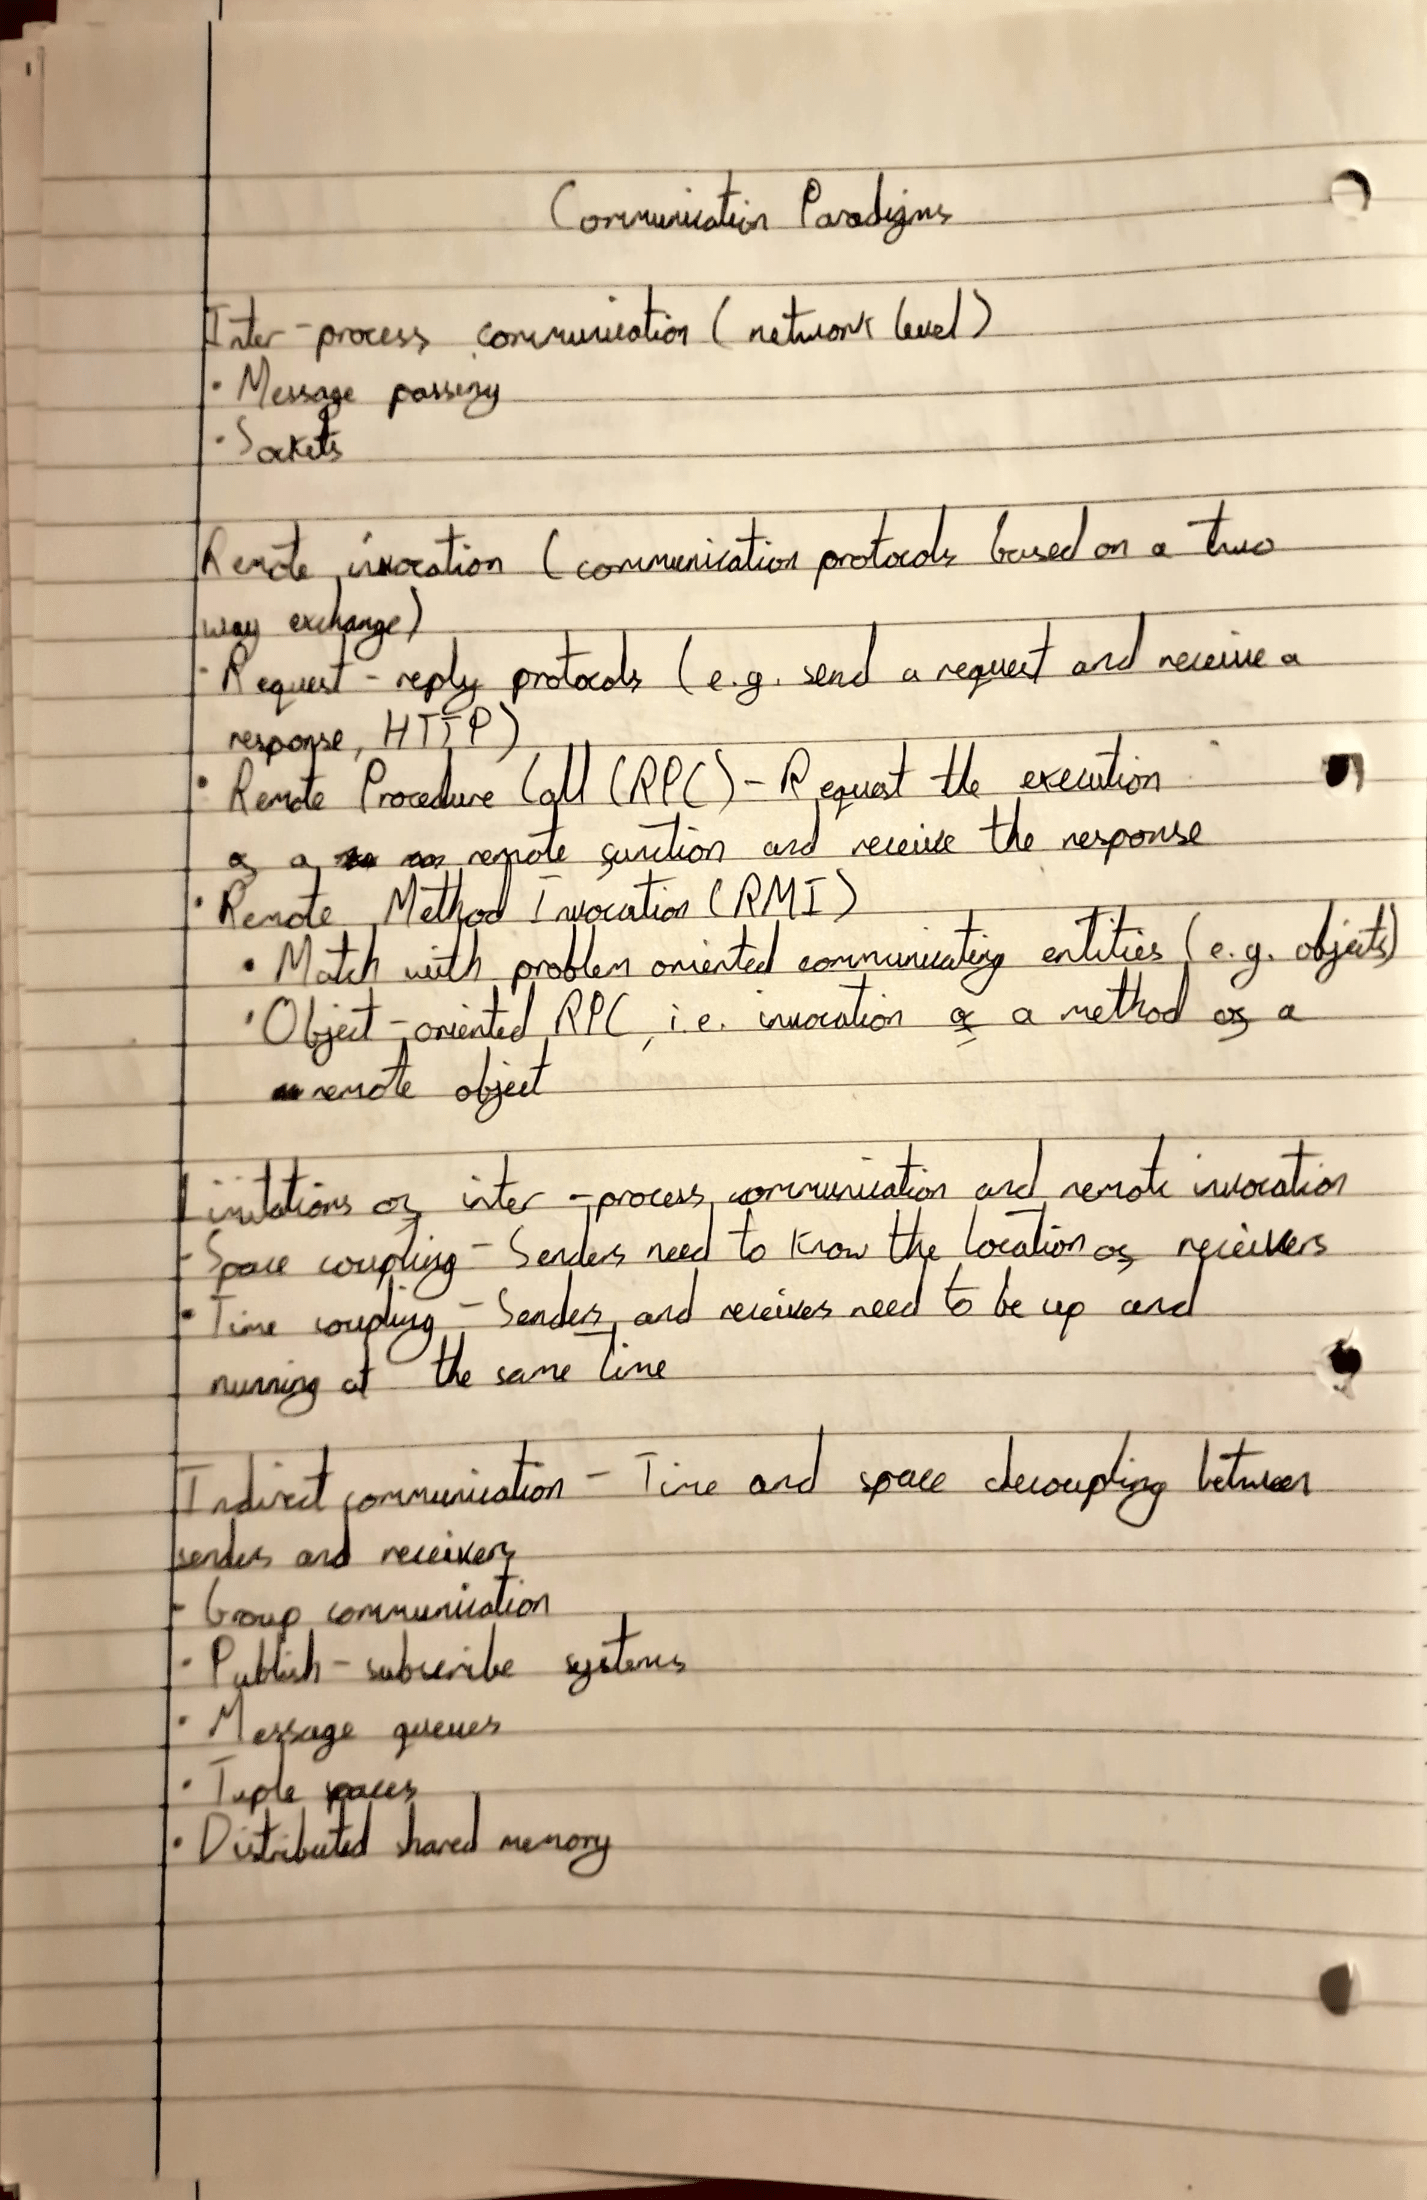 Communication Paradigms
Inter-process communication (network level)
• Message passing
• Sockets
Remote invocation (communication protocols based on a two
way exchange)
• Request-reply protocols (e.g. send a request and receive a
response, HTTP)
• Remote Procedure Call (RPC) - Request the execution
of a remote function and receive the response
• Remote Method Invocation (RMI)
• Match with problem oriented communicating entities (e.g. objects)
• Object-oriented RPC, i.e. invocation of a method of a
remote object
Limitations of inter-process communication and remote invocation
- Space coupling - Senders need to know the location of receivers
• Time coupling - Senders and receives need to be up and
running at the same time
Indirect communication - Time and space decoupling between
senders and receivers
- Group communication
• Publish-subscribe systems
• Message queues
• Tuple spaces
• Distributed shared memory